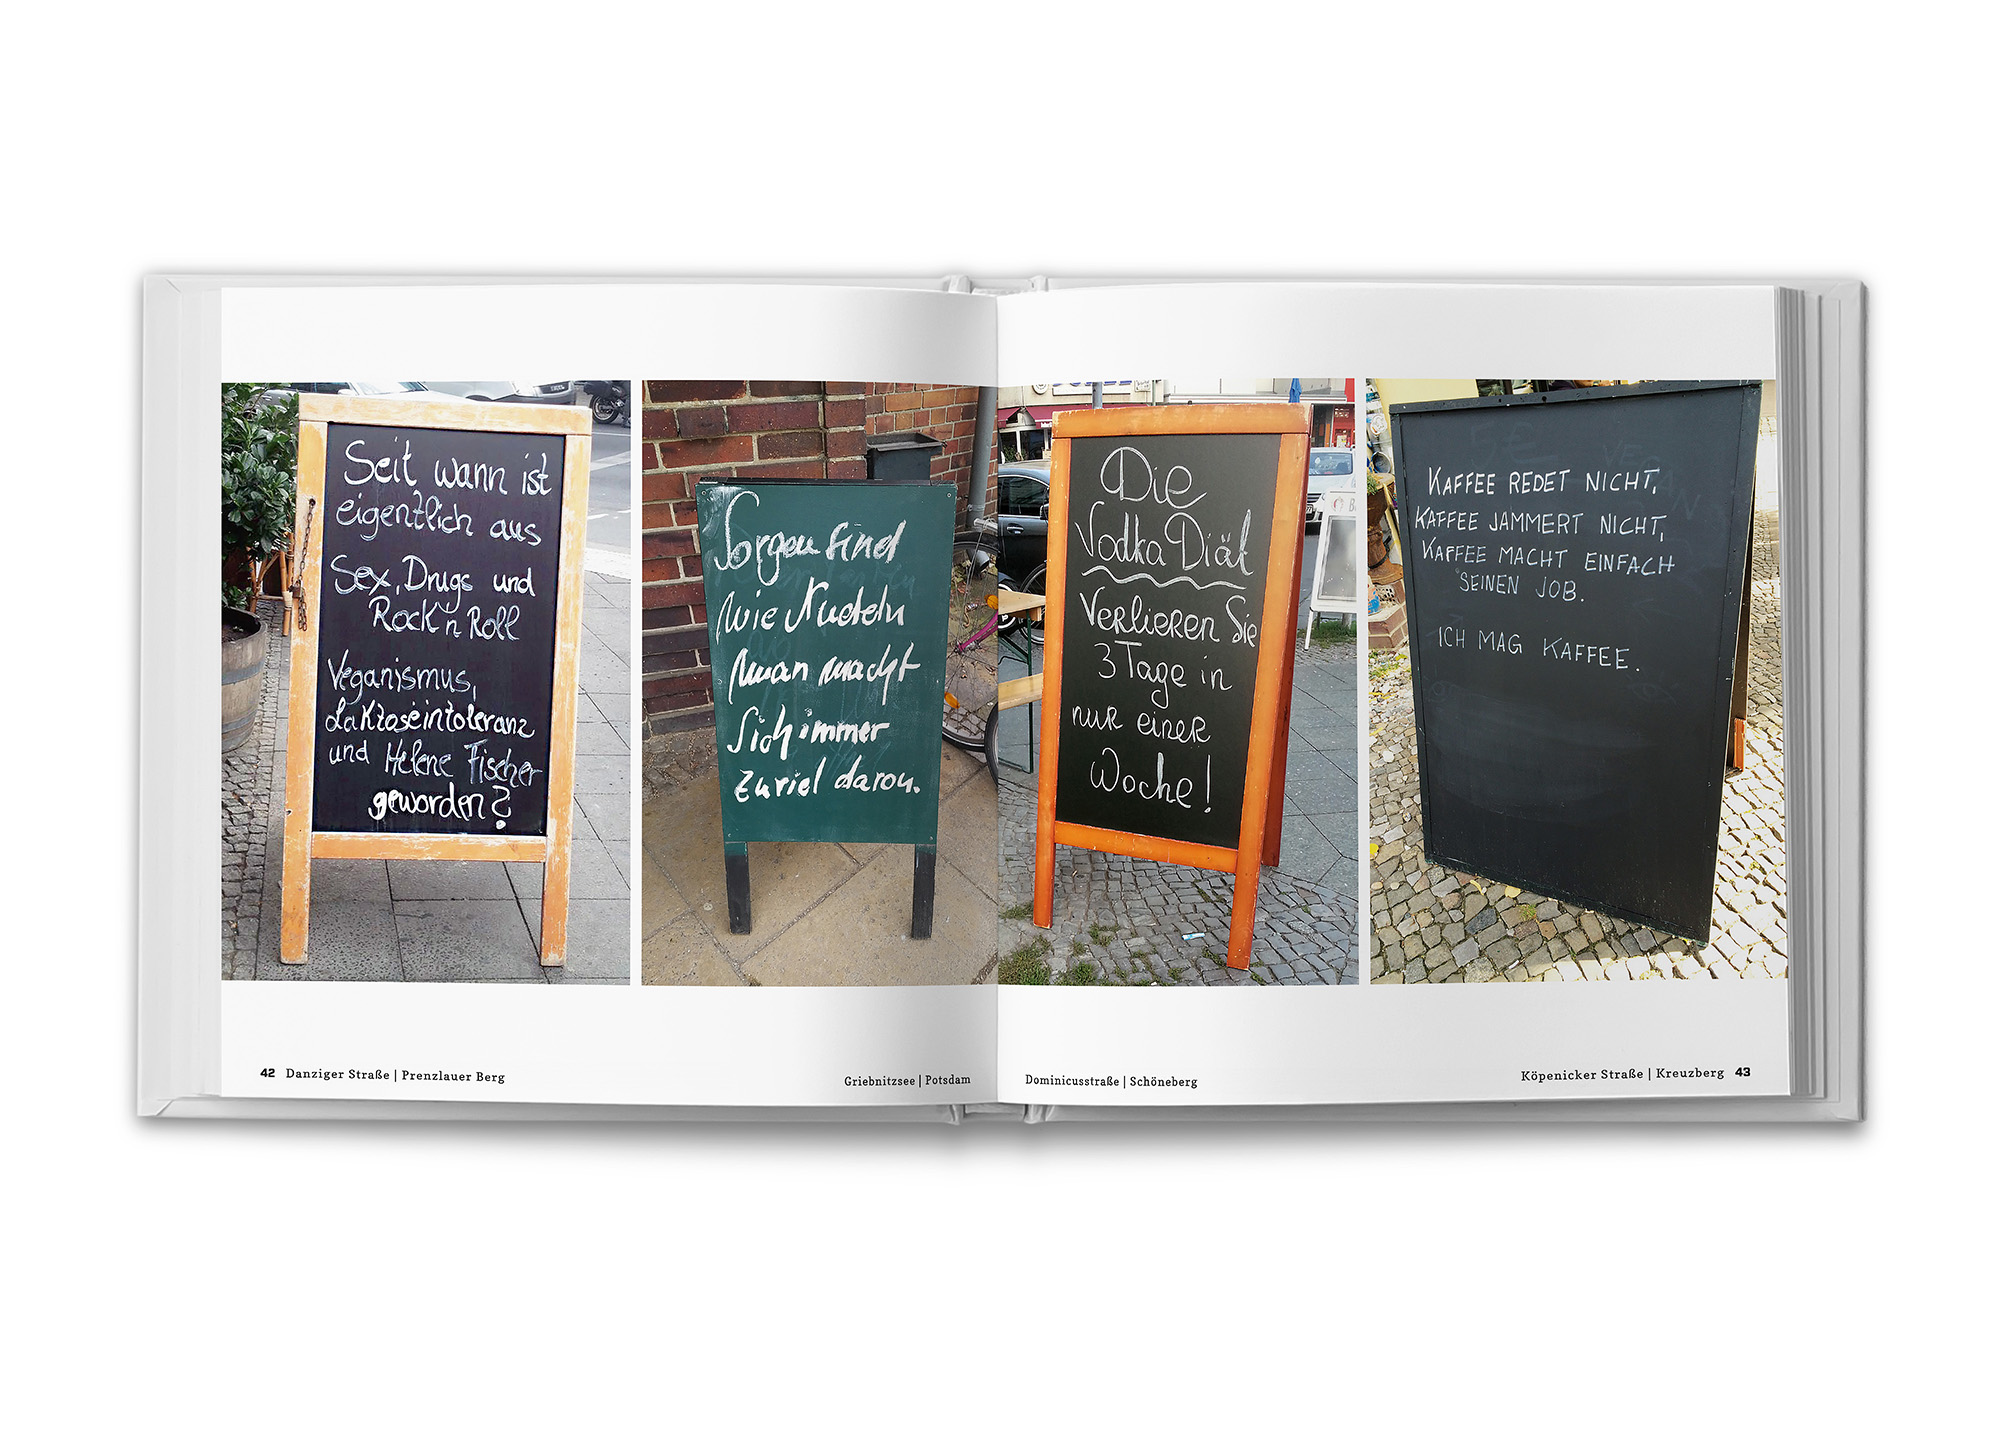 Seit wann ist
eigentlich aus
Sex, Drugs und
Rock'n Roll
Veganismus,
Laktoseintoleranz
und Helene Fischer
geworden?
Sorgen sind
wie Nudeln
man macht
sich immer
zuviel davon.
Die
Vodka Diät
Verlieren Sie
3 Tage in
nur einer
Woche!
KAFFEE REDET NICHT,
KAFFEE JAMMERT NICHT,
KAFFEE MACHT EINFACH
SEINEN JOB.
ICH MAG KAFFEE.
42 Danziger Straße | Prenzlauer Berg
Griebnitzsee | Potsdam
Dominicusstraße | Schöneberg
Köpenicker Straße | Kreuzberg 43